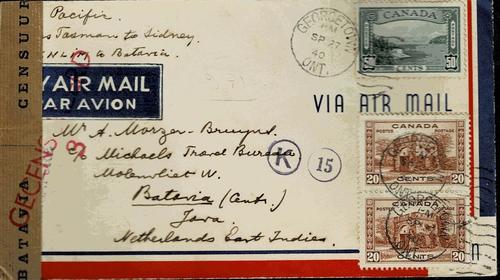 Pacific
Tasman to Sidney
KNILM to Batavia
CENSUUR
BATAVIA
GECENS
BY AIR MAIL
PAR AVION
GEORGETOWN
PM
SP 27
40
ONT.
CANADA
50 CENTS 50
VIA AIR MAIL
Mr A. Morzer-Bruyns.
c/o Michaels Travel Bureau
Molenvliet W.
Batavia (Centr.)
Java.
Netherlands East Indies.
K
15
CANADA
POSTES POSTAGE
20 CENTS 20
CANADA
POSTES POSTAGE
20 CENTS 20
GEORGETOWN
ONT.